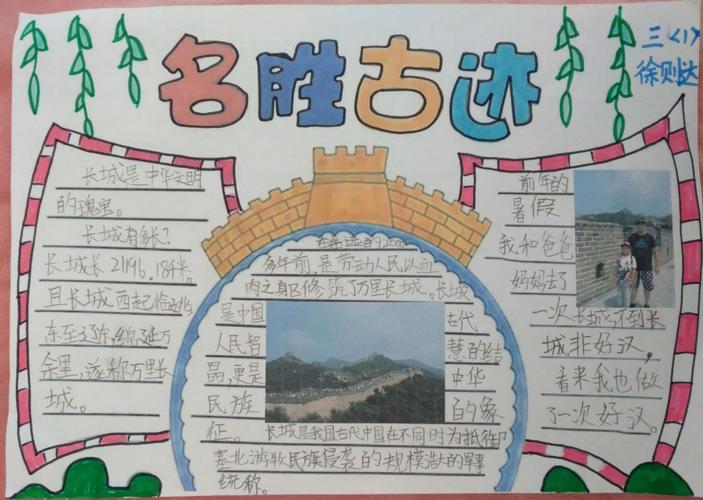 名胜古迹
三〈1〉
徐则达
长城是中华文明
的瑰宝。
长城有多长?
长城长21196.18千米
且长城西起临洮
东至辽东,绵延万
余里,遂称万里长
城。
在年远的2000
多年前,是劳动人民以血
肉之躯修筑了万里长城。长城
是中国古代
人民智慧的结
晶,更是中华
民族的象
征。长城是我国古代中国在不同时为抵御
塞北游牧民族侵袭的规模浩大的军事
统称。
前年的
暑假
我和爸爸
妈妈去了
一次长城,不到长
城非好汉,
看来我也做
了一次好汉。